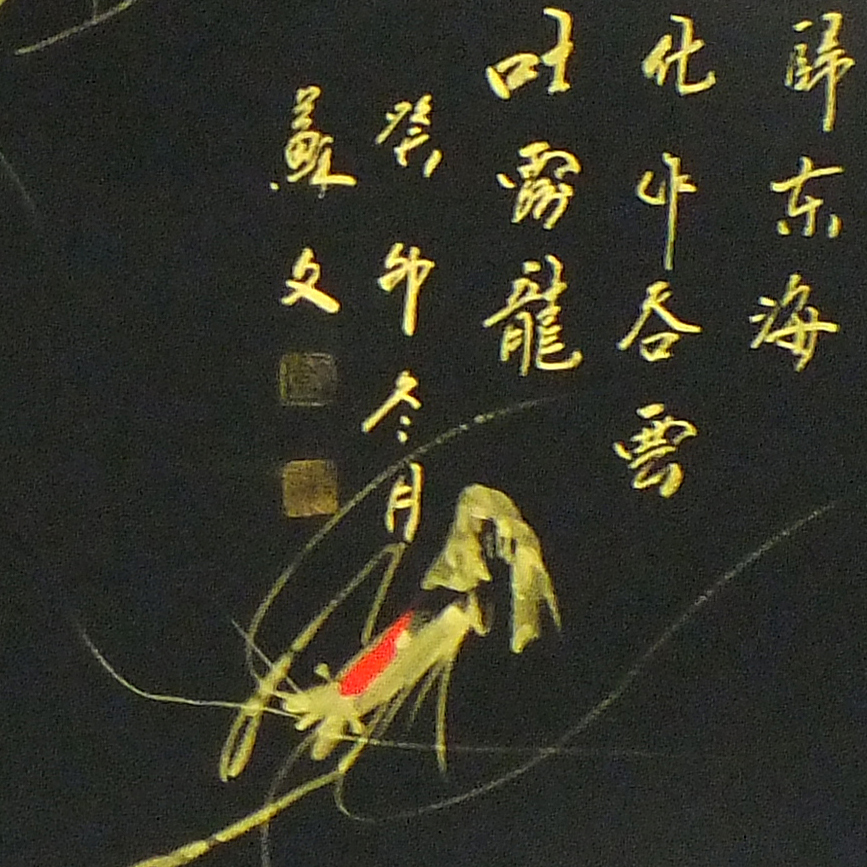 歸东海
化作吞雲
吐霧龍
癸卯冬月
蘇文